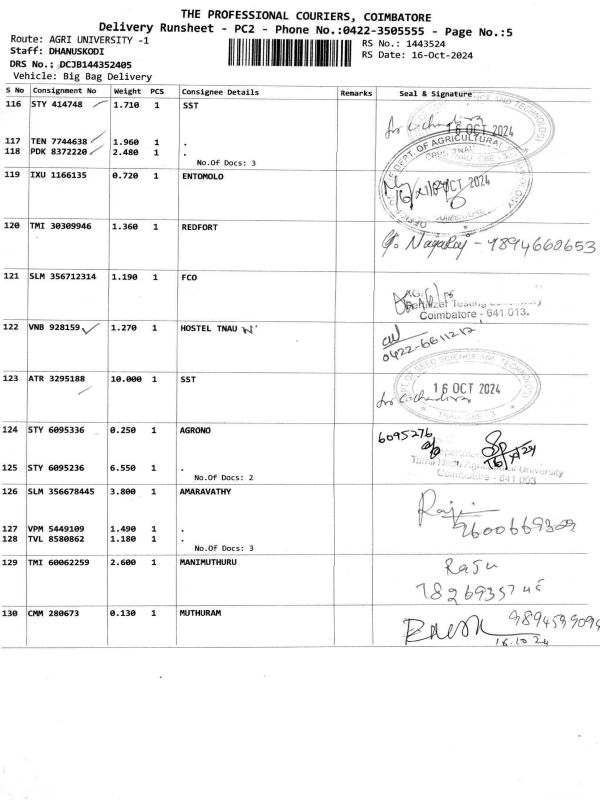 THE PROFESSIONAL COURIERS, COIMBATORE
Delivery Runsheet - PC2 - Phone No.:0422-3505555 - Page No.:5
Route: AGRI UNIVERSITY -1
RS No.: 1443524
Staff: DHANUSKODI
RS Date: 16-Oct-2024
DRS No.: DCJB144352405
Vehicle: Big Bag Delivery
S No Consignment No Weight PCS Consignee Details Remarks Seal & Signature
116 STY 414748 1.710 1 SST
16 OCT 2024
117 TEN 7744638 1.960 1 .
118 PDK 8372220 2.480 1 .
No.Of Docs: 3
DEPT. OF AGRICULTURAL
TNAU, CBE - 3
119 IXU 1166135 0.720 1 ENTOMOLO
OCT 2024
120 TMI 30309946 1.360 1 REDFORT
Nagaraj - 9894660653
121 SLM 356712314 1.190 1 FCO
Coimbatore - 641 013.
122 VNB 928159 1.270 1 HOSTEL TNAU
0422-6611212
123 ATR 3295188 10.000 1 SST
DEPT OF SEED SCIENCE AND TECHNOLOGY
16 OCT 2024
TNAU CBE - 3
124 STY 6095336 0.250 1 AGRONO
6095276
16/x/24
125 STY 6095236 6.550 1 .
No.Of Docs: 2
Tamil Nadu Agricultural University
Coimbatore - 641 003
126 SLM 356678445 3.800 1 AMARAVATHY
127 VPM 5449109 1.490 1 .
128 TVL 8580862 1.180 1 .
No.Of Docs: 3
129 TMI 60062259 2.600 1 MANIMUTHURU
Raju
130 CMM 280673 0.130 1 MUTHURAM
9894599094
16.10.24